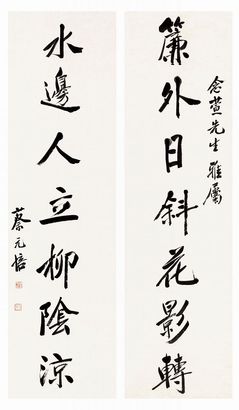 簾外日斜花影轉
念萱先生雅屬
水邊人立柳陰涼
蔡元培